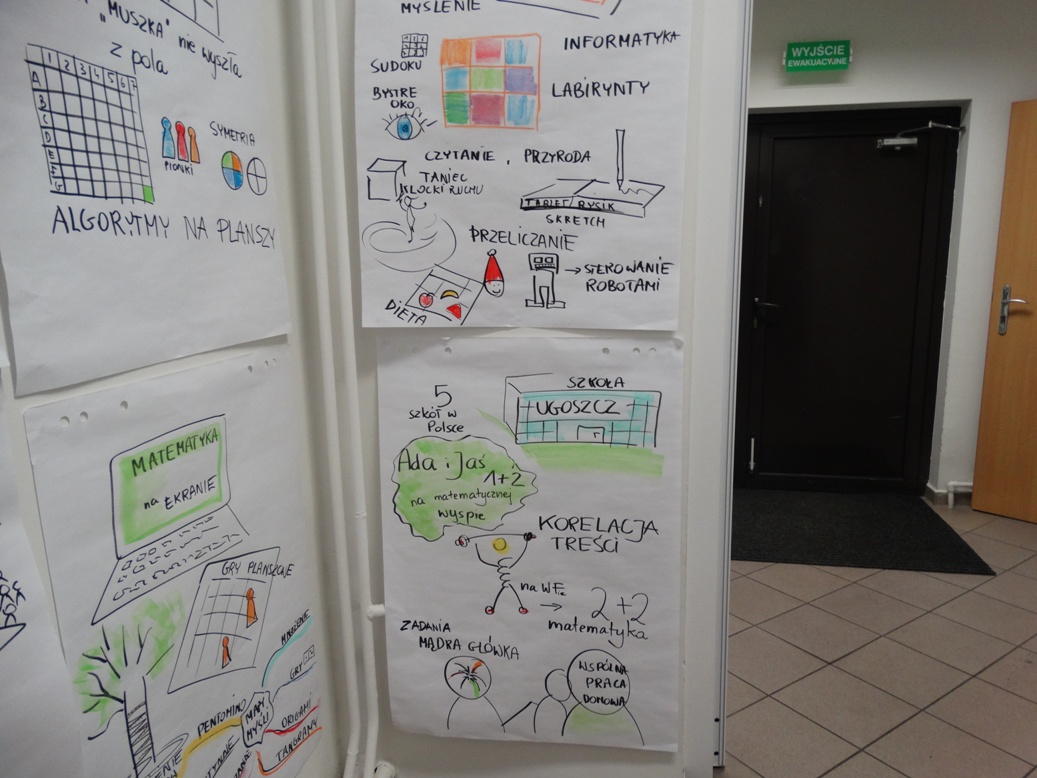 "MUSZKA" nie wyszła
z pola
1 2 3 4 5 6 7
A
B
C
D
E
F
G
PIONKI
SYMETRIA
ALGORYTMY NA PLANSZY
MYŚLENIE
SUDOKU
INFORMATYKA
BYSTRE
OKO
LABIRYNTY
CZYTANIE, PRZYRODA
TANIEC
KLOCKI RUCHU
TABLET/RYSIK
SKRETCH
PRZELICZANIE
→ STEROWANIE
ROBOTAMI
DIETA
WYJŚCIE
EWAKUACYJNE
MATEMATYKA
na EKRANIE
GRY PLANSZOWE
MNOŻENIE
GRY
PENTOMINO
MAPY
MYŚLI
ORIGAMI
TANGRAMY
5
szkół w
Polsce
SZKOŁA
UGOSZCZ
Ada i Jaś
1+2
na matematycznej
wyspie
KORELACJA
TREŚCI
na WFie
→ 2+2
matematyka
ZADANIA
MĄDRA GŁÓWKA
WSPÓLNA
PRACA
DOMOWA